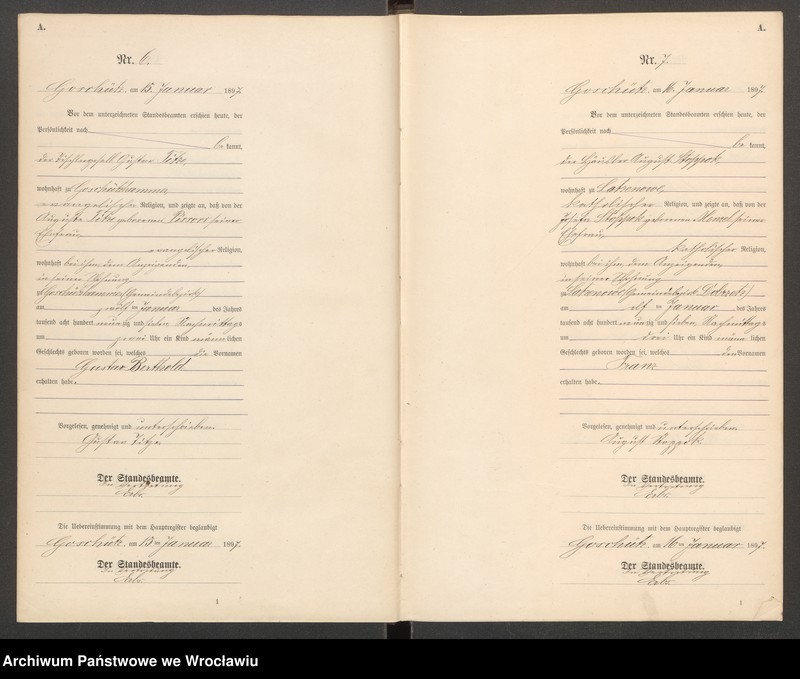 A.
Nr. 6.
Goschütz, am 15. Januar 1897.
Vor dem unterzeichneten Standesbeamten erschien heute, der
Persönlichkeit nach
be kannt,
der Tischlergesell Gustav
wohnhaft zu Goschützhammer
evangelischer Religion, und zeigte an, daß von der
Auguste geborenen seiner
Ehefrau,
evangelischer Religion,
wohnhaft bei ihm, dem Anzeigenden,
in seiner Wohnung
zu Goschützhammer, Gemeindebezirk
am ten Januar des Jahres
tausend acht hundert neunzig und sieben Nachmittags
um zwei Uhr ein Kind männlichen
Geschlechts geboren worden sei, welches die Vornamen
Gustav Berthold
erhalten habe.
Vorgelesen, genehmigt und unterschrieben.
Gustav
Der Standesbeamte.
In Vertretung
Die Uebereinstimmung mit dem Hauptregister beglaubigt
Goschütz, am 15 ten Januar 1897.
Der Standesbeamte.
In Vertretung
1
A.
Nr. 7.
Goschütz, am 16. Januar 1897.
Vor dem unterzeichneten Standesbeamten erschien heute, der
Persönlichkeit nach
be kannt,
der Häusler August
wohnhaft zu
katholischer Religion, und zeigte an, daß von der
geborenen seiner
Ehefrau,
katholischer Religion,
wohnhaft bei ihm, dem Anzeigenden,
in seiner Wohnung
Gemeindebezirk
am elf ten Januar des Jahres
tausend acht hundert neunzig und sieben Nachmittags
um drei Uhr ein Kind männlichen
Geschlechts geboren worden sei, welches den Vornamen
Franz
erhalten habe.
Vorgelesen, genehmigt und unterschrieben.
August
Der Standesbeamte.
In Vertretung
Die Uebereinstimmung mit dem Hauptregister beglaubigt
Goschütz, am 16 ten Januar 1897.
Der Standesbeamte.
In Vertretung
1
Archiwum Państwowe we Wrocławiu